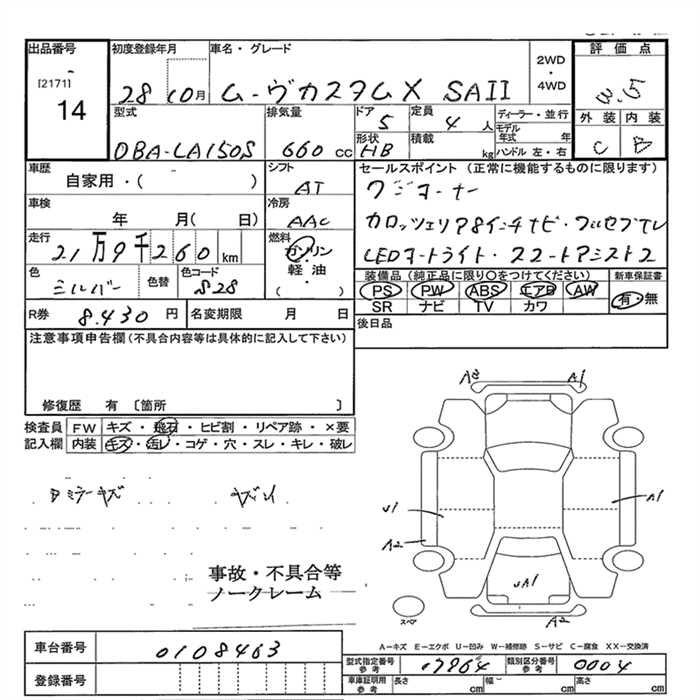 出品番号 初度登録年月 車名・グレード 2WD・4WD 評価点
[2171] 14
28 10月 ムーヴカスタムX SAII 3.5
型式 排気量 ドア 5 定員 4人 ディーラー・並行 外装 内装
DBA-LA150S 660cc 形状 HB 積載 kg モデル年式 年 ハンドル 左・右 C B
車歴 自家用・( ) シフト AT
セールスポイント (正常に機能するものに限ります)
ワンオーナー
車検 年 月( 日) 冷房 AAC
カロッツェリア8インチナビ・フルセグTV
走行 21万9千260km 燃料 ガソリン 軽油 ・ ( )
LEDヘッドライト・スマートアシスト2
色 シルバー 色替 色コード S28
装備品 (純正品に限り○をつけてください) 新車保証書
PS PW ABS エアB AW 有・無
SR ナビ TV カワ
R券 8.430円 名変期限 月 日 後日品
注意事項申告欄 (不具合内容等は具体的に記入して下さい)
修復歴 有 〔箇所 〕
検査員記入欄 FW キズ・飛石・ヒビ割・リペア跡・×要
内装 キズ・汚レ・コゲ・穴・スレ・キレ・破レ
A2 A1
U1 A1
A2
UA1
A2
スペア
事故・不具合等
ノークレーム
A-キズ E-エクボ U-凹み W-補修跡 S-サビ C-腐食 XX-交換済
車台番号 0108463
型式指定番号 参考 17964 類別区分番号 参考 0004
登録番号
車庫証明用 参考 長さ cm 幅 cm 高さ cm